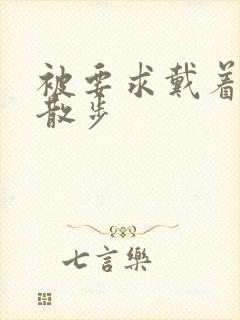 被要求戴着
散步
七言樂